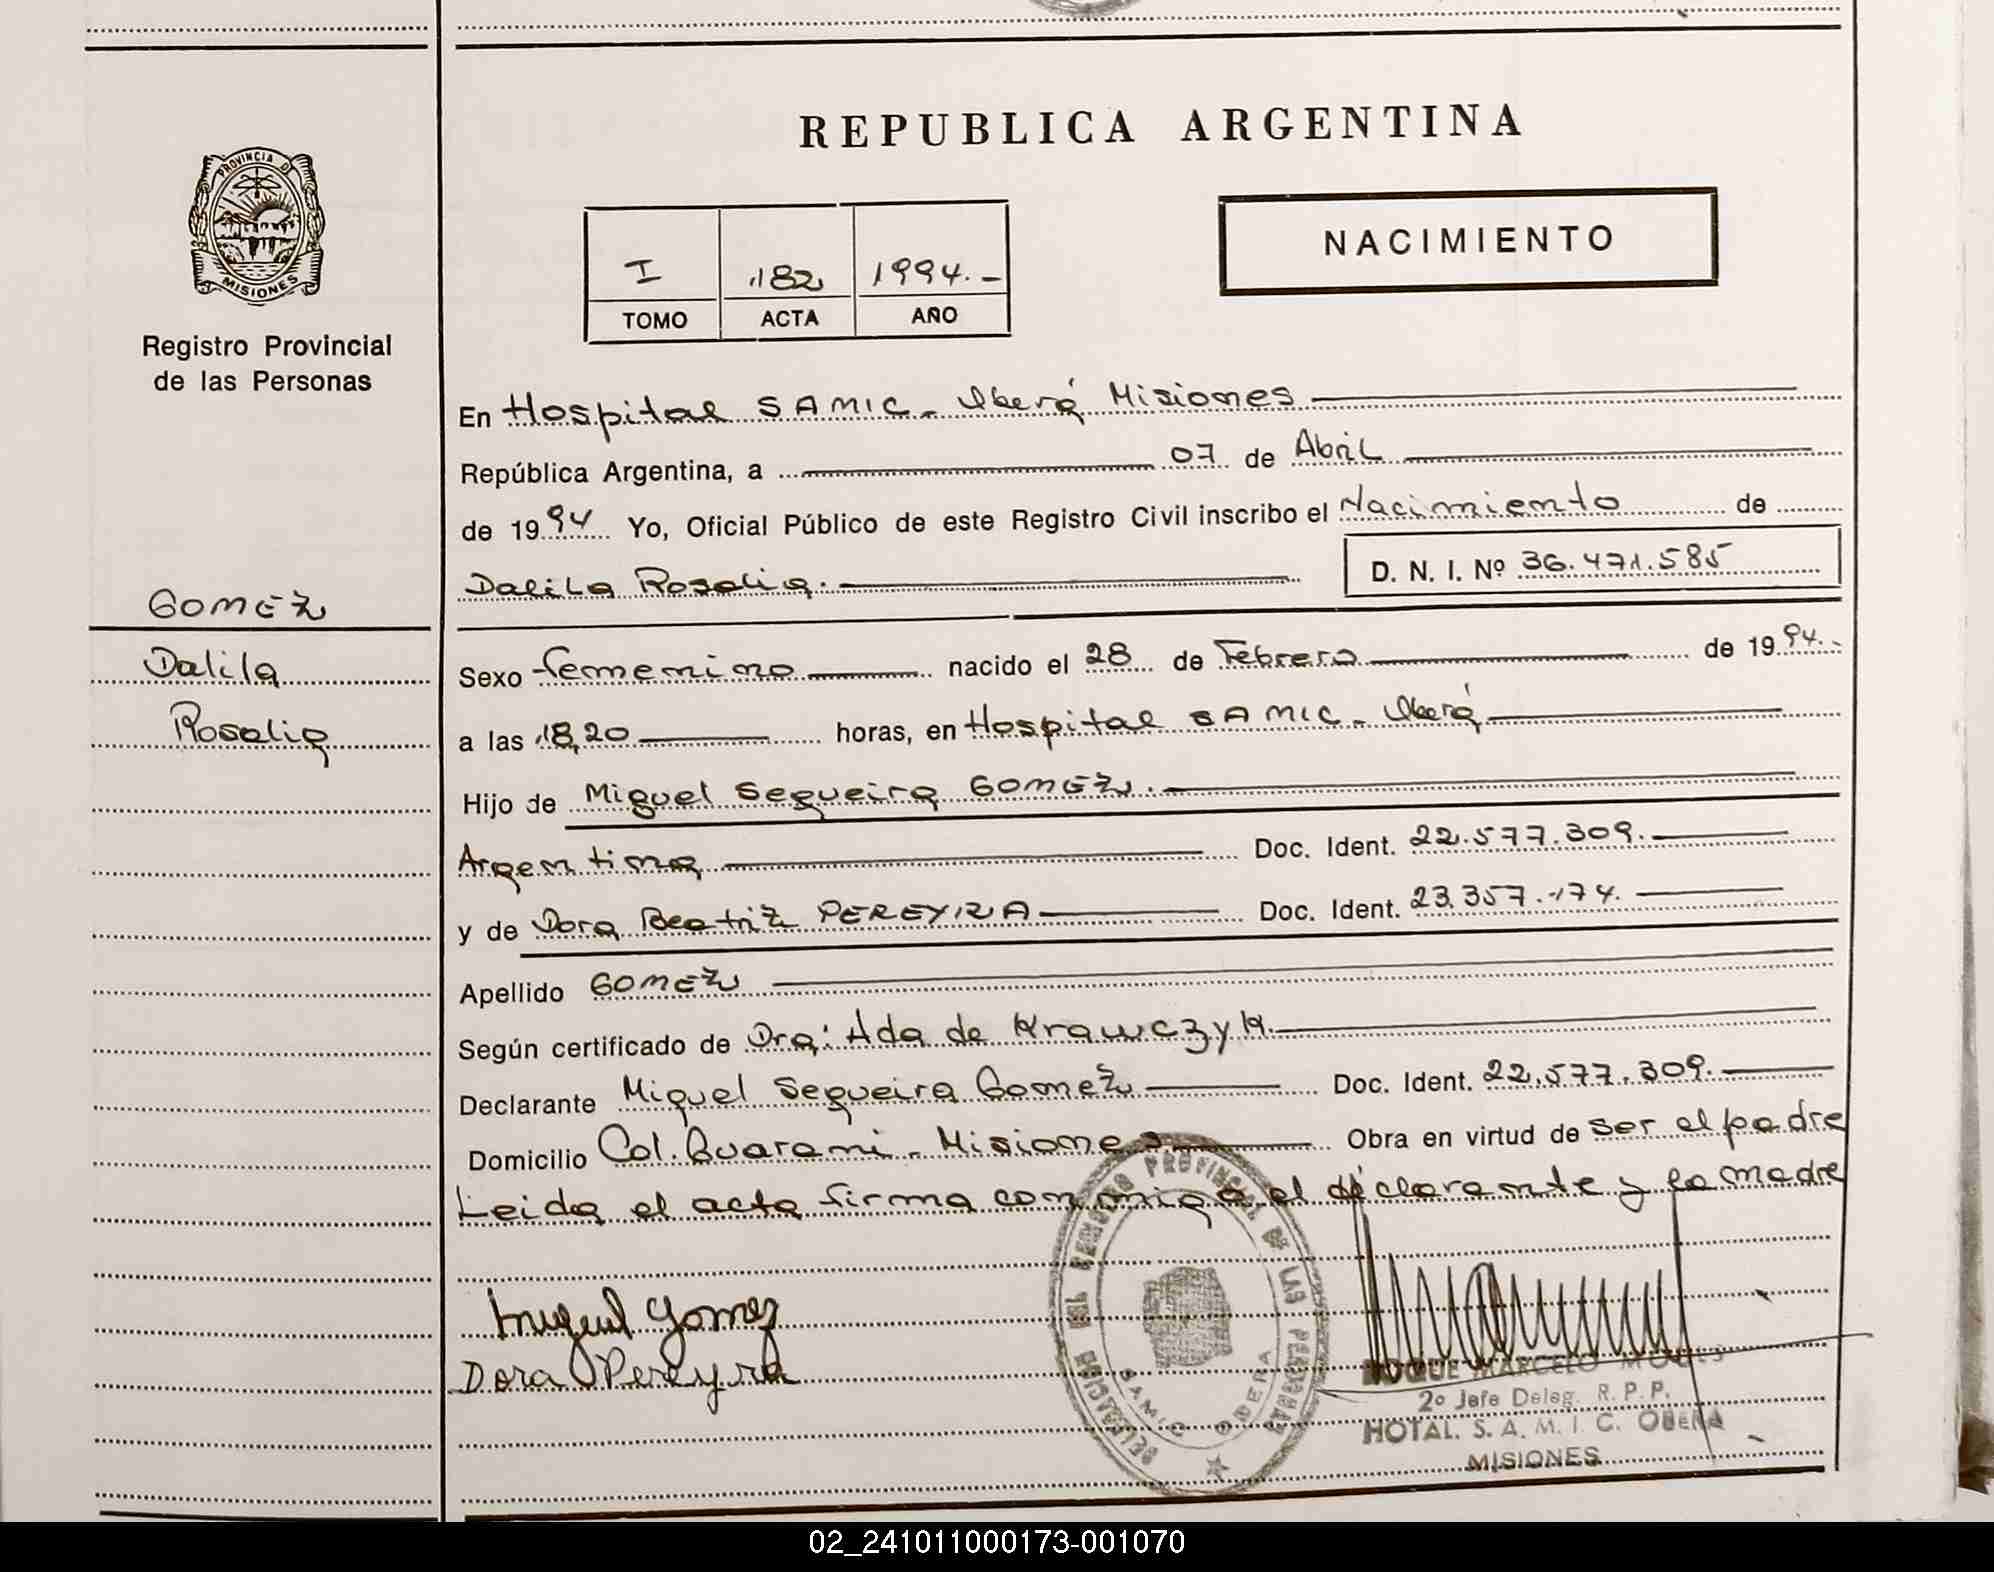 REPUBLICA ARGENTINA
PROVINCIA DE
MISIONES
Registro Provincial
de las Personas
NACIMIENTO
I 182 1994.-
TOMO ACTA AÑO
En Hospital SAMIC - Oberá Misiones
República Argentina, a 07 de Abril
de 1994 Yo, Oficial Público de este Registro Civil inscribo el Nacimiento de
Dalila Rosalia. D. N. I. Nº 36.471.585
GOMEZ
Dalila
Rosalia
Sexo femenino nacido el 28 de Febrero de 1994.-
a las 18,20 horas, en Hospital SAMIC - Oberá
Hijo de Miguel Sequeira GOMEZ.
Argentina Doc. Ident. 22.577.309.
y de Dora Beatriz PEREYRA Doc. Ident. 23.357.174.
Apellido GOMEZ
Según certificado de Dra: Ada de Krawczyk.
Declarante Miguel Sequeira Gomez Doc. Ident. 22.577.309.
Domicilio Col. Guarani - Misiones Obra en virtud de ser el padre
Leida el acta firma conmigo el declarante y la madre
Miguel Gomez
Dora Pereyra
REGISTRO PROVINCIAL DE LAS PERSONAS
SAMIC OBERA
ROQUE MARCELO
2º Jefe Deleg. R. P. P.
HOTAL. S. A. M. I. C. OBERA
MISIONES
02_241011000173-001070